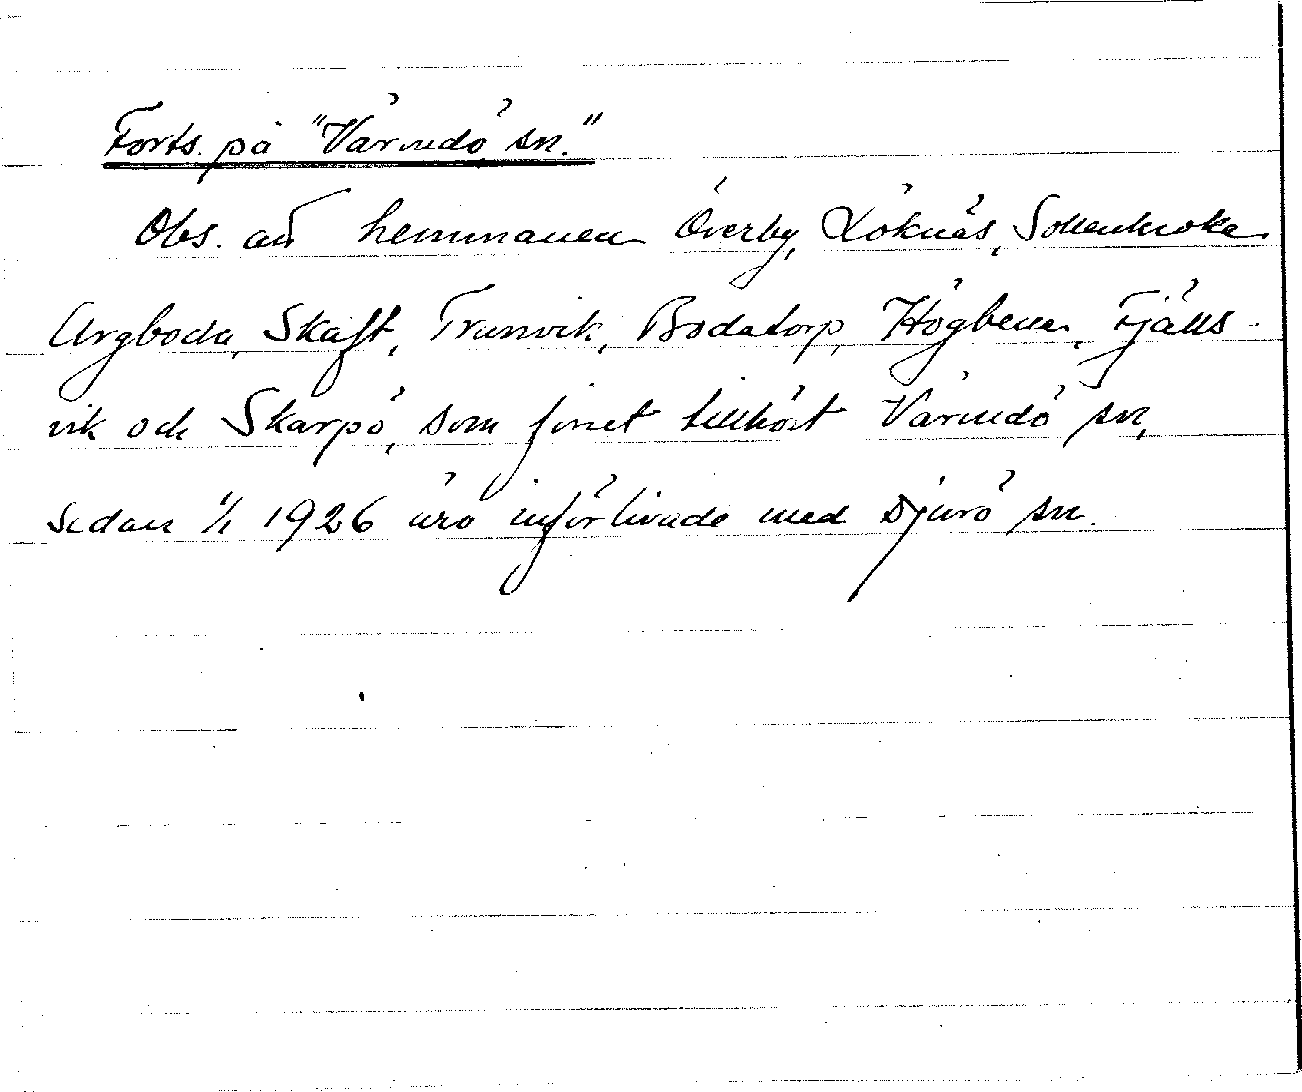 Forts. på "Värmdö sn."
Obs. att hemmanen Överby, Löknäs, Sollenkroka
Argboda, Skaft, Trunvik, Bodatorp, Högbena, Fjälls-
vik och Skarpö, som förut tillhört Värmdö sn,
sedan 1/1 1926 äro införlivade med Djurö sn.